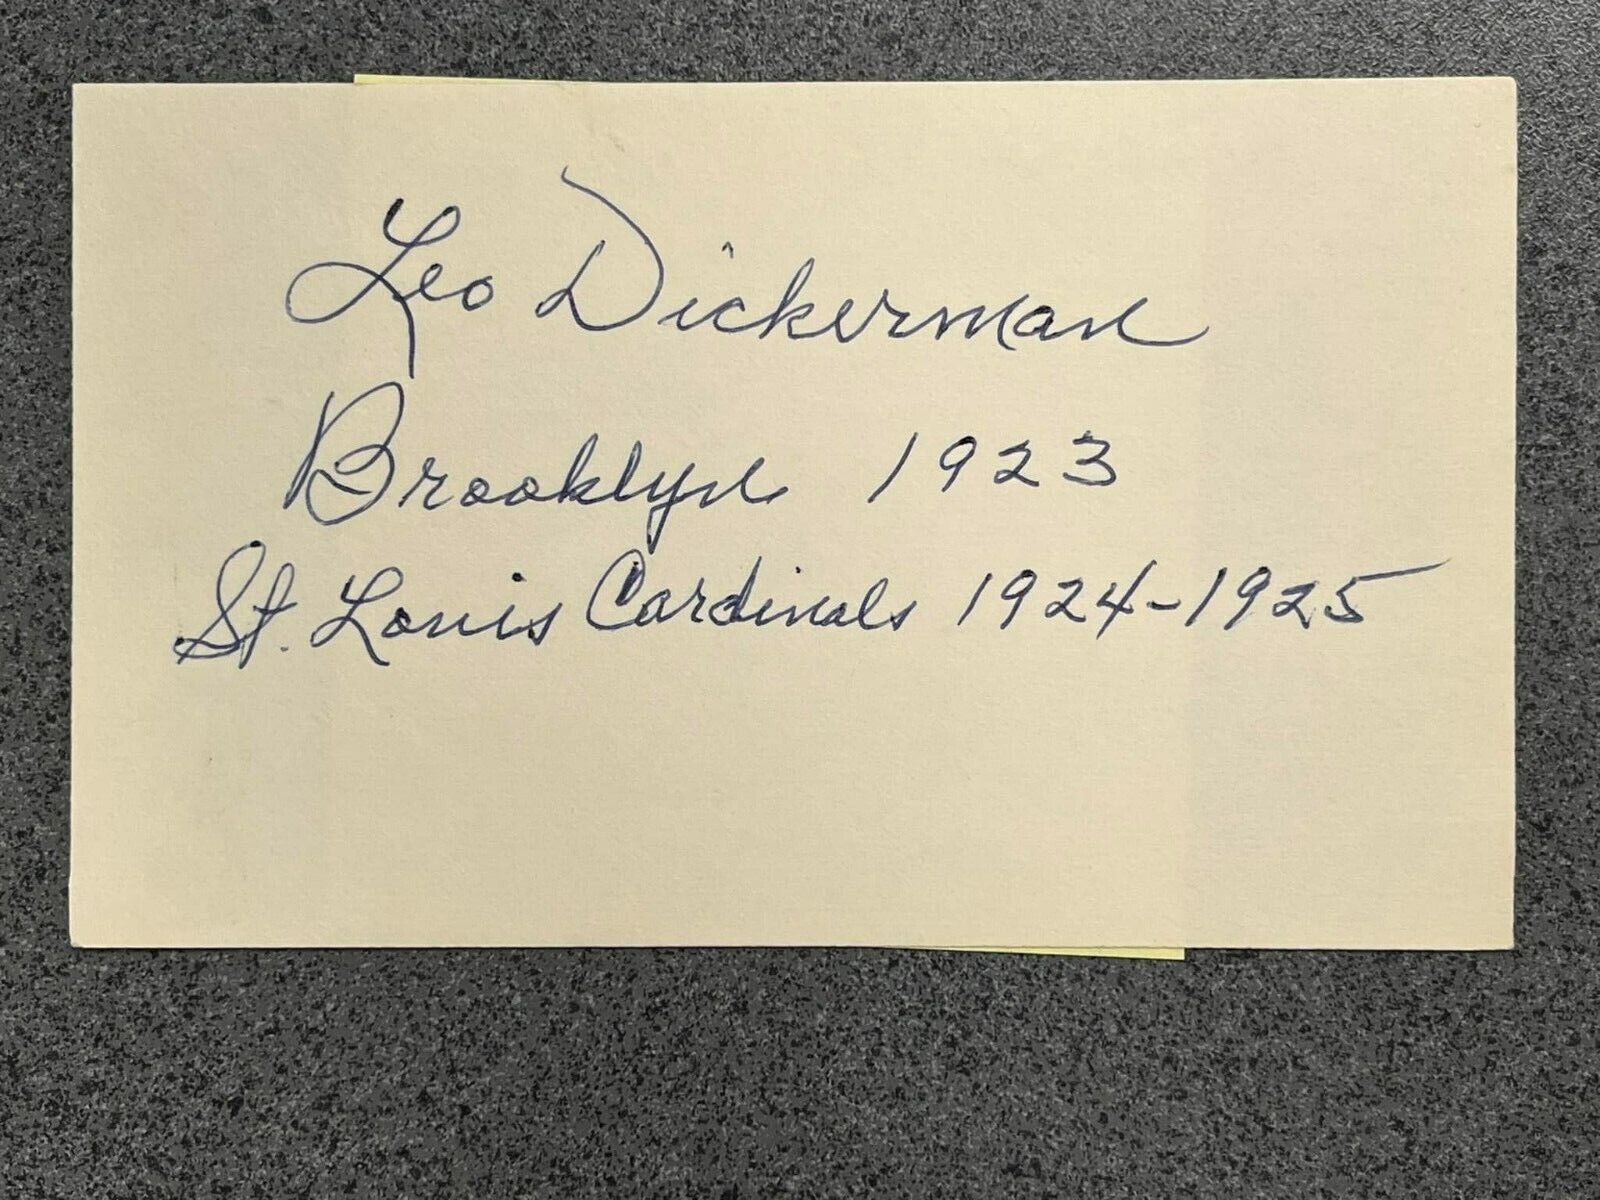 Leo Dickerman
Brooklyn 1923
St. Louis Cardinals 1924-1925